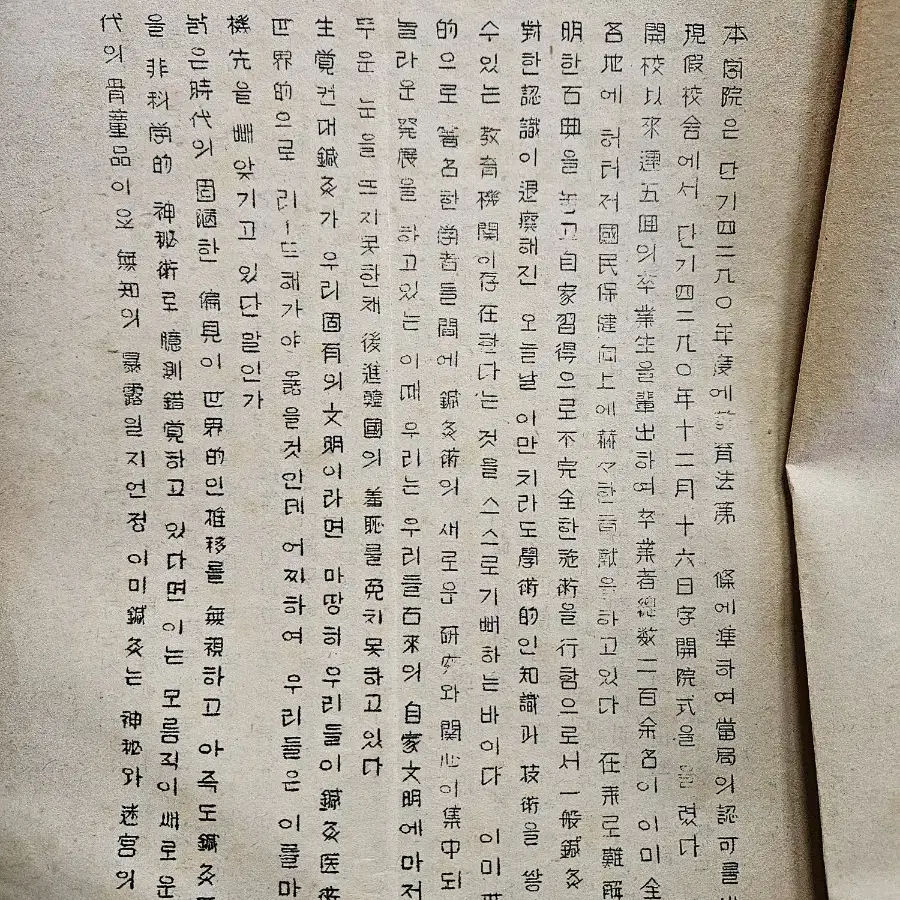 本学院은 단기四二九〇年度에 育法第 條에準하여當局의認可를
現假校舍에서 단기四二九〇年十二月十六日字開院式을 렸다
開校以來運五回의卒業生을輩出하여卒業者總数二百余名이 이미全
各地에 허터저國民保健向上에赫々한貢献을하고있다 在来로難解
明한石典을 고自家習得으로不完全한施術을行함으로서一般鍼灸
對한認識이退瘝해진 오늘날 이만치라도學術的인知識과 技術을
수있는 教育機関이存在한다는 것을스스로기뻐하는바이다 이미
的으로 著名한学者들間에 鍼灸術의 새로운 研究와 関心이集中되
놀라운発展을 하고있는 이때우리는 우리들石來의自家文明에마저
두운 눈을 뜨지못한채 後進韓國의 羞恥를免치못하고있다
生覚컨대鍼灸가 우리固有의文明이라면 마땅히우리들이鍼灸医術
世界的으로 리ㅡ드해가야 옳을것인데어찌하여 우리들은 이를마
機先을빼앗기고 있단말인가
낡은時代의固陋한 偏見이世界的인推移를 無視하고 아즉도鍼灸
을 非科学的 神秘術로 臆測錯覚하고 있다면이는 모름직이새로운
代의骨董品이오 無知의 暴露일지언정이미鍼灸는 神秘와迷宮의